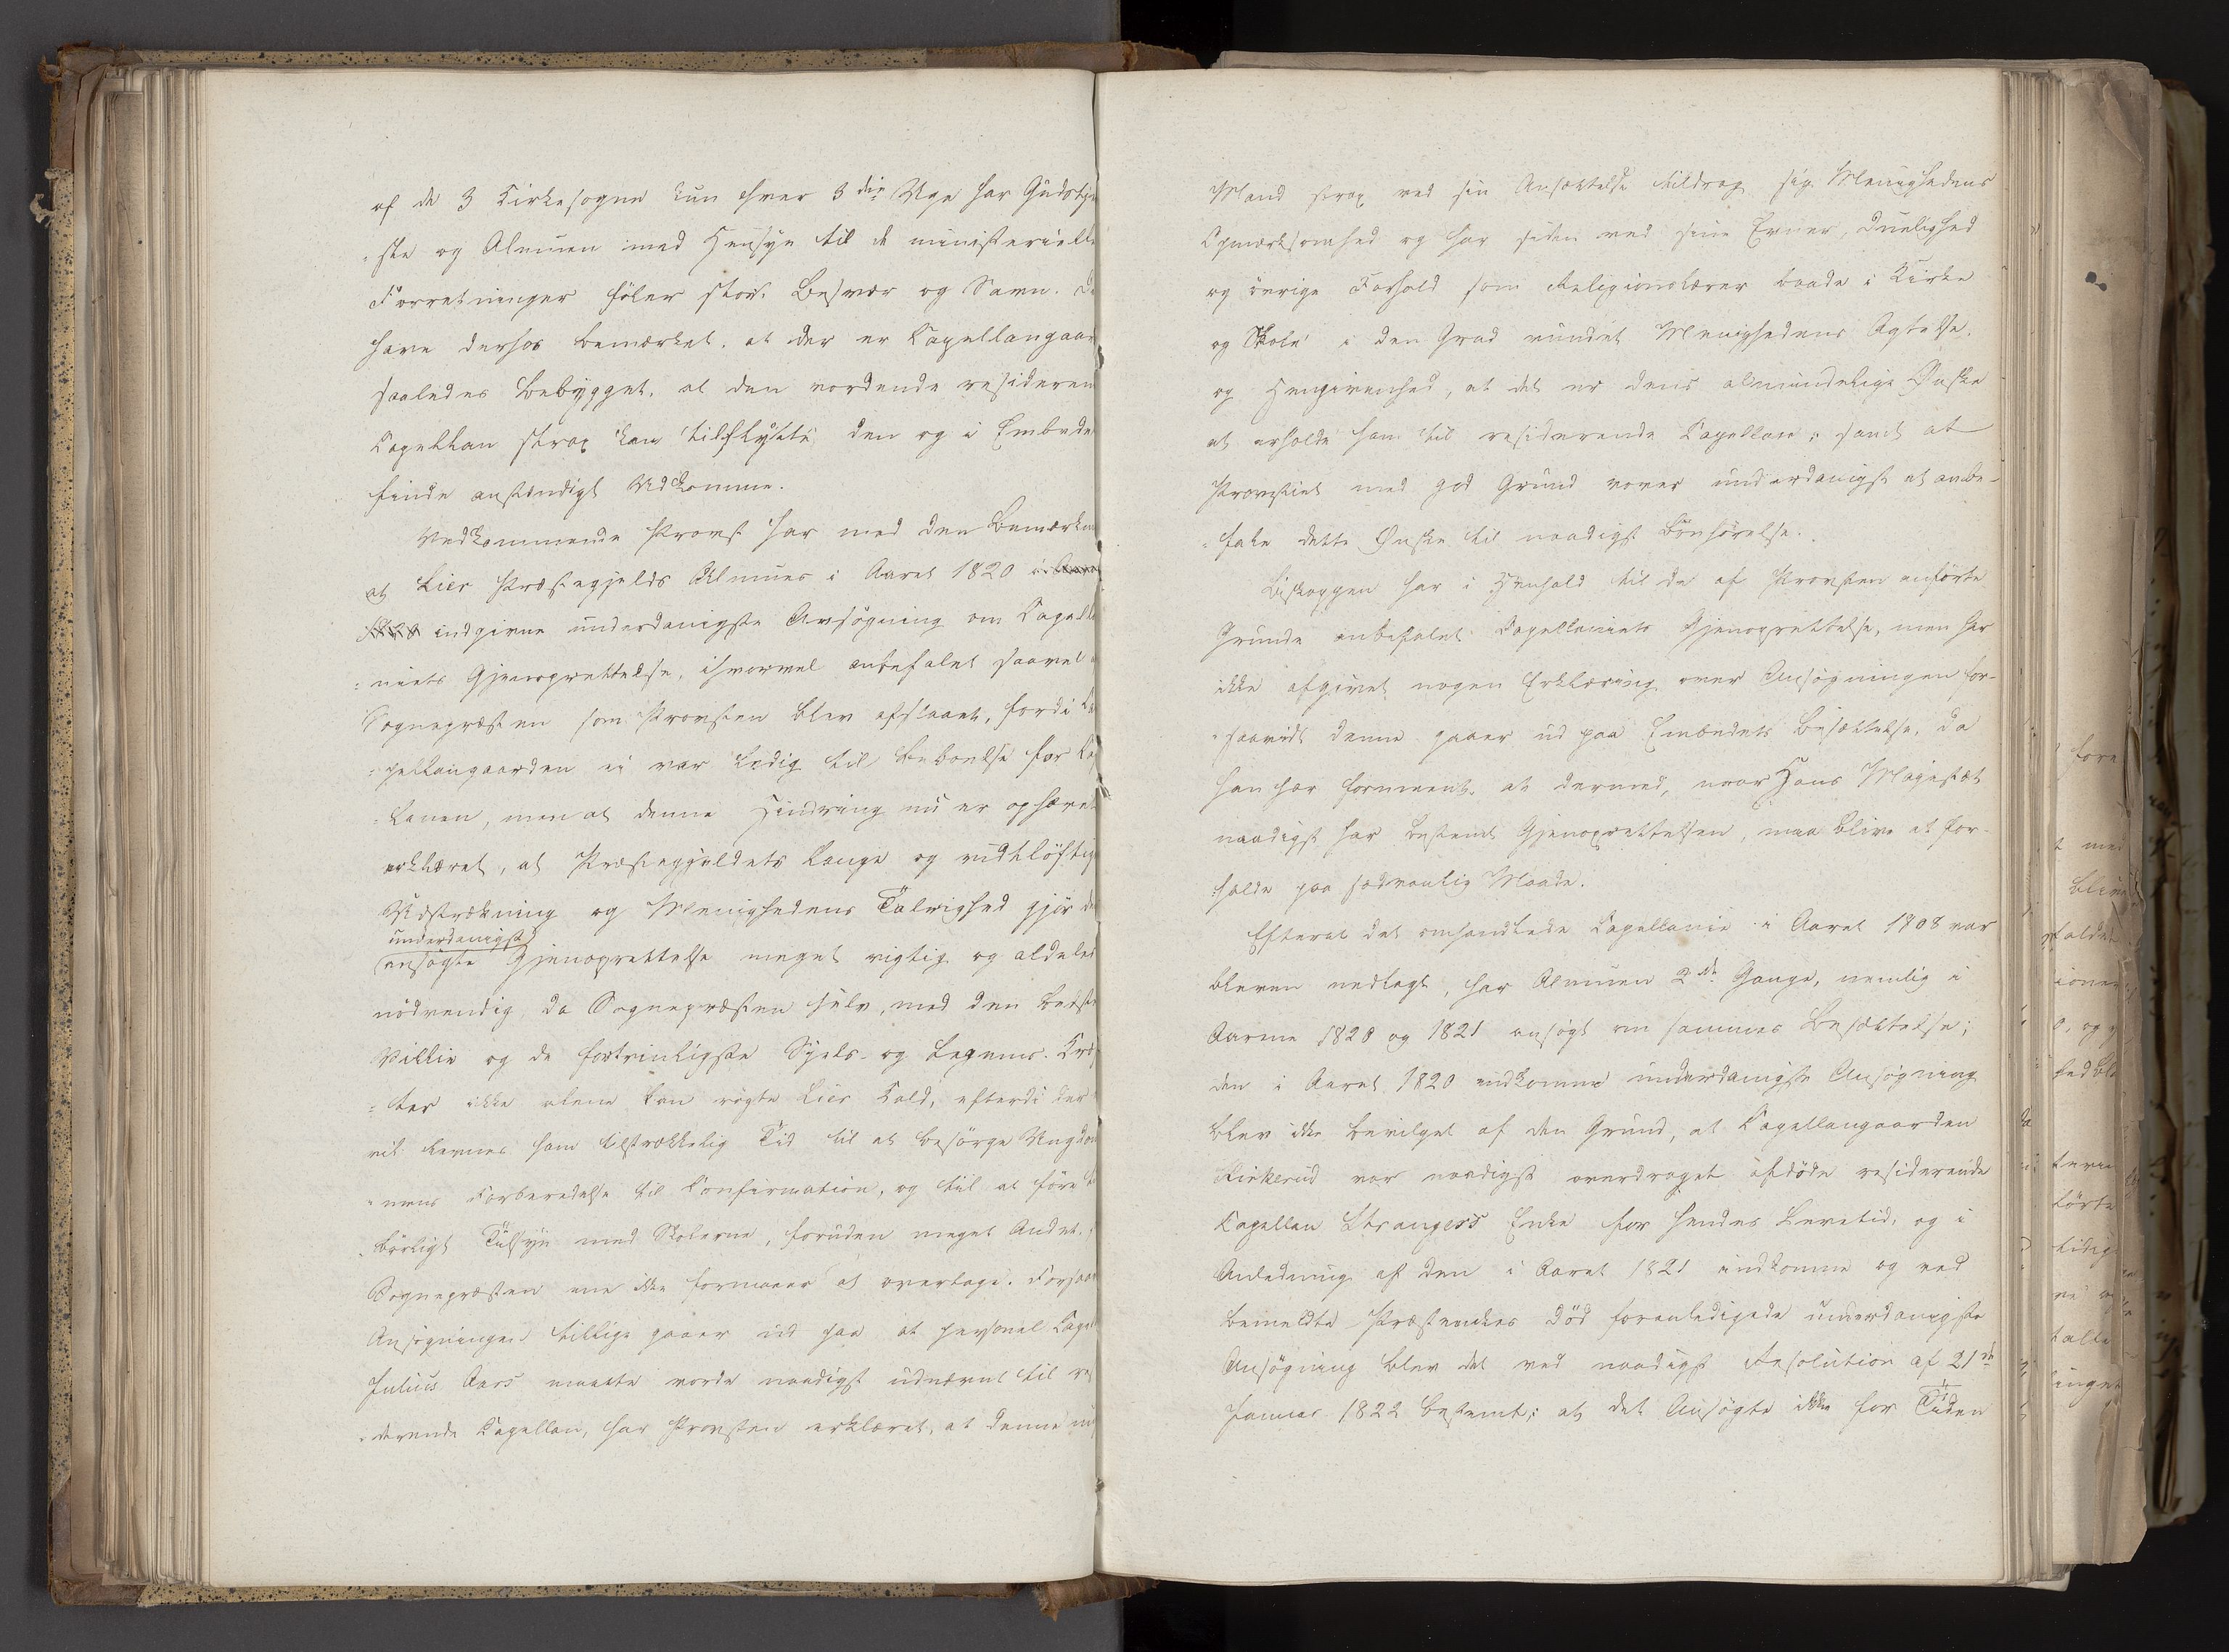 af de 3 Kirkesogne kun hver 3die Uge har Gudstje
"ste og Almuen med Hensyn til de ministerielle
Forretninger föler stort Besvær og Savn. De
have derhos bemærket, at der er Capellangaar
saaledes bebygget, at den vordende resideren
Capellan strax kan tilflytte den og i Embede
finde anstændigt Udkomme.
Vedkommende Provst har med den Bemærkn
at Lier Præstegjelds Almues i Aaret 1820
indgivne underdanigste Ansögning om Capella
"niets Gjenoprettelse, ihvorvel anbefalet saavel
Sognepræsten som Provsten blev afslaaet, fordi Ca
"pellangaarden ei var ledig til Beboelse for Ca
"lanen, men at denne Hindring nu er ophævet
erklæret, at Præstegjeldets lange og vidtlöftige
Udstrækning og Menighedens Talrighed gjör de
underdanigst
ansögte Gjenoprettelse meget vigtig og aldeles
nödvendig, da Sognepræsten selv, med den bedste
Villie og de fortrinligste Sjels- og Legems-Kræf
"ter ikke alene kan rögte Lier Kald, efterdi der
ei levnes ham tilstrækkelig Tid til at besörge Ungdom
"mens Forberedelse til Confirmation, og til at före
börligt Tilsyn med Skolerne, foruden meget Andet,
Sognepræsten ene ikke formaaer at overtage. Forsaav
Ansögningen tillige gaaer ud paa at personel Capel
Julius Aars maatte vorde naadigst udnævnt til resi
"derende Capellan, har Provsten erklæret, at denne
Mand strax ved sin Ansættelse tildrog sig Menighedens
Opmærksomhed og har siden ved sine Evner, Duelighed
og övrige Forhold som Religionslærer baade i Kirke
og Skole i den Grad vundet Menighedens Agtelse
og Hengivenhed, at det er dens almindelige Ønske
at erholde ham til residerende Capellan; samt at
Provstiet med god Grund vover underdanigst at anbe-
"fale dette Ønske til naadigst Bönhörelse.
Biskoppen har i Henhold til de af Provsten anförte
Grunde anbefalet Capellaniets Gjenoprettelse, men har
ikke afgivet nogen Erklæring over Ansögningen for-
"saavidt denne gaaer ud paa Embedets Besættelse, da
han har formeent, at dermed, naar Hans Majestæt
naadigst har bestemt Gjenoprettelsen, maa blive at for-
"holde paa sædvanlig Maade.
Efterat det omhandlede Capellanie i Aaret 1808 var
bleven nedlagt, har Almuen 2de Gange, nemlig i
Aarene 1820 og 1821 ansögt om sammes Besættelse;
den i Aaret 1820 indkomne underdanigste Ansögning
blev ikke bevilget af den Grund, at Capellangaarden
Kirkerud var naadigst overdraget afdöde residerende
Capellan Strangers Enke for hendes Levetid, og i
Anledning af den i Aaret 1821 indkomne og ved
bemeldte Præsteenkes Död foranledigede underdanigste
Ansögning blev det ved naadigst Resolution af 21de
Januar 1822 bestemt, at det Ansögte ikke for Tiden